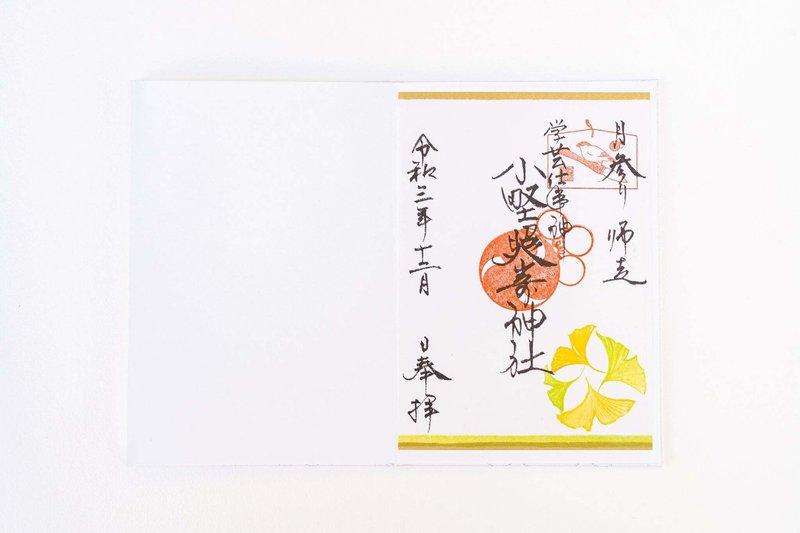 月参り 師走
学芸仕事神
小野照崎神社
令和三年十二月 日奉拝